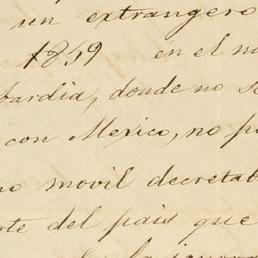 un extrangero
1859 en el
bardia, donde no
con Mexico, no
movil decreta
rte del pais que
la